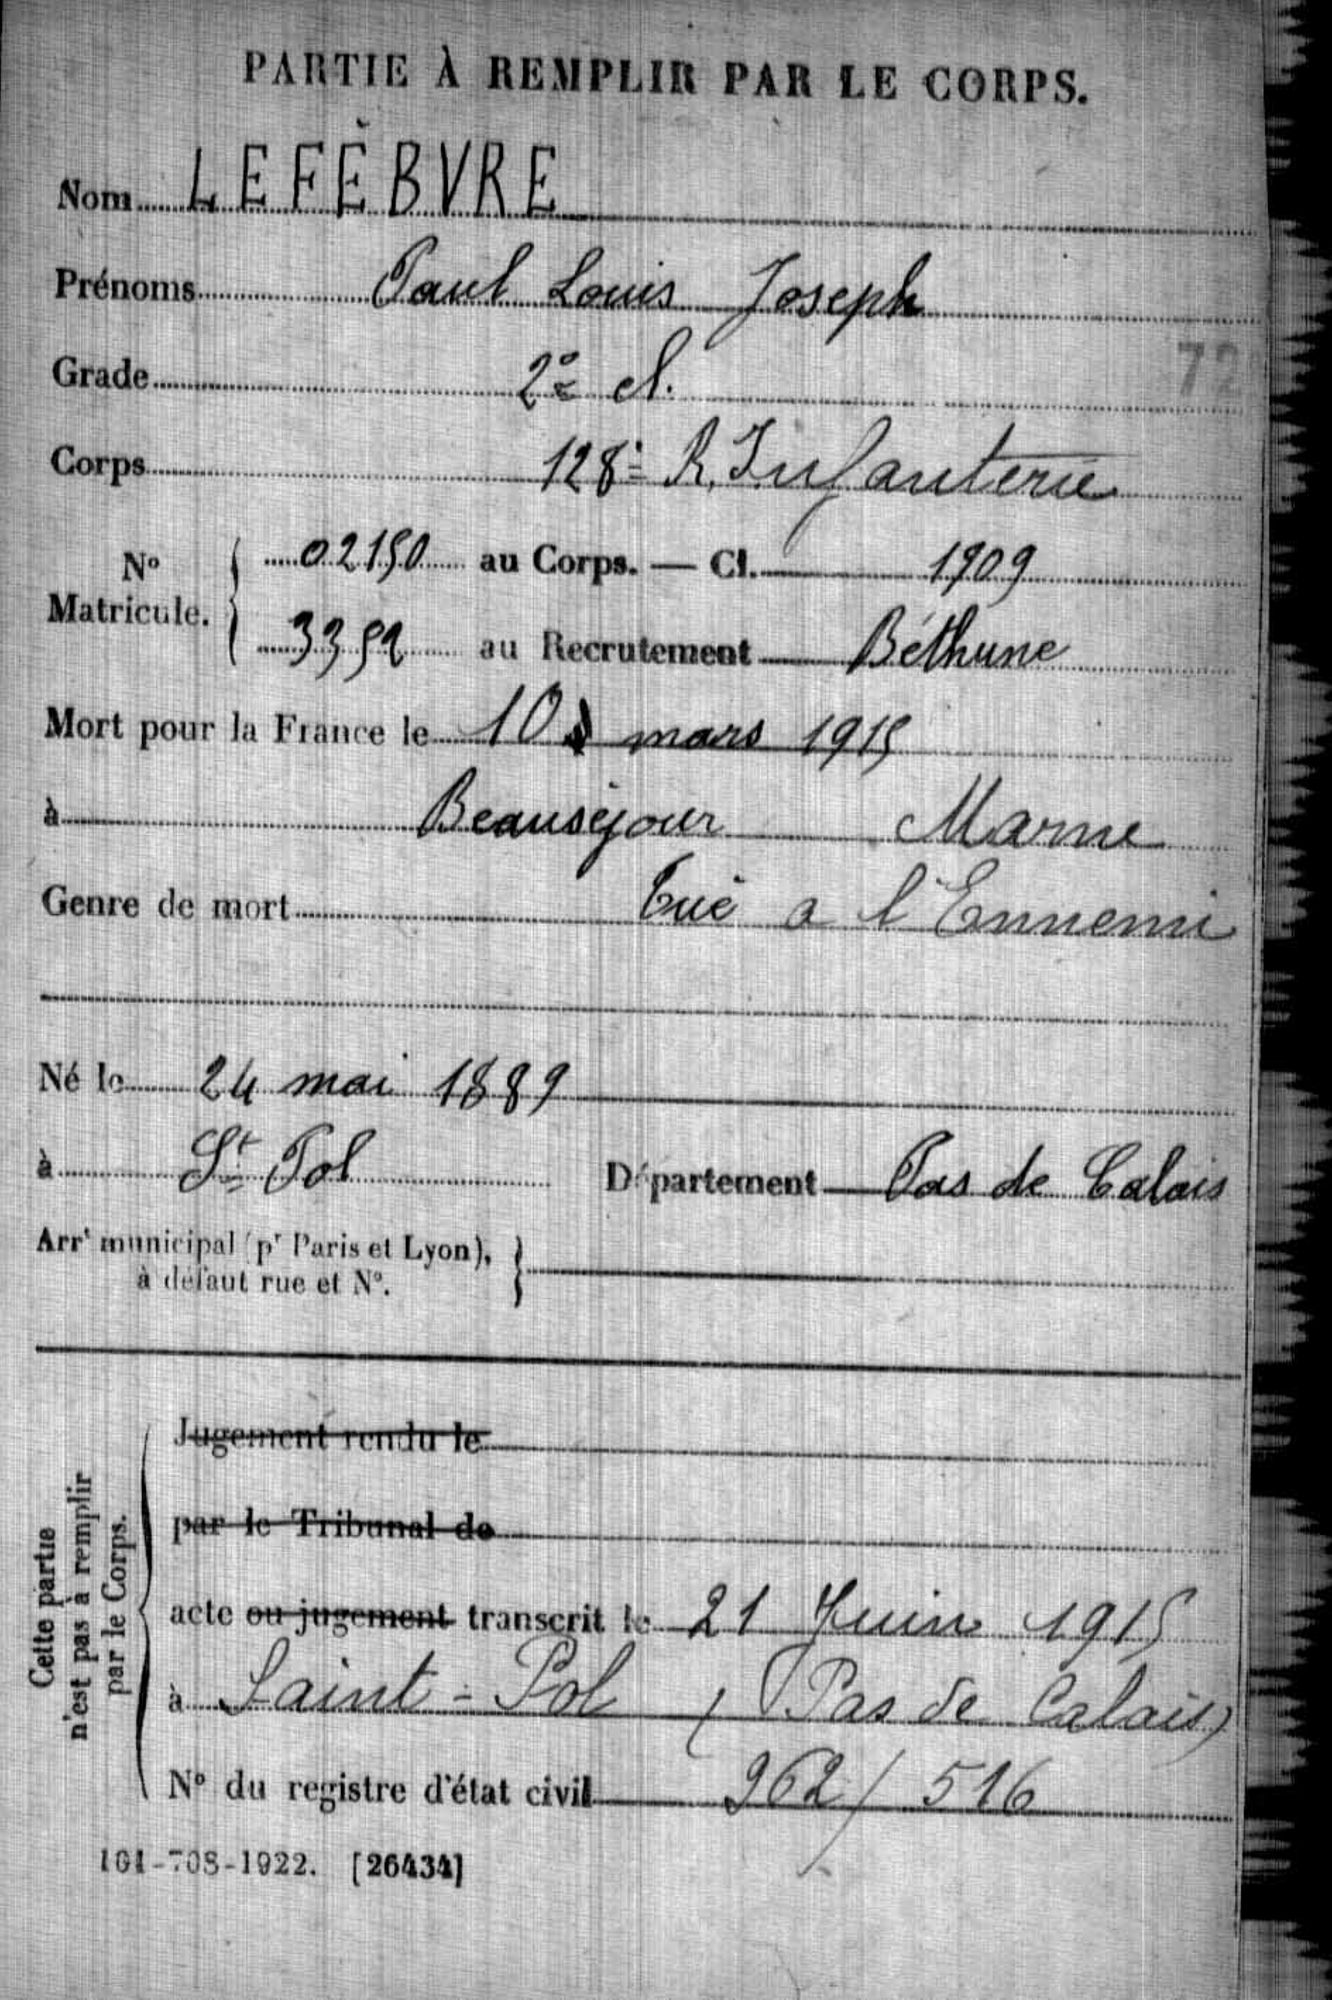 PARTIE À REMPLIR PAR LE CORPS.
Nom LEFÈBVRE
Prénoms Paul Louis Joseph
Grade 2e cl.
72
Corps 128e R. Infanterie
No Matricule. { 02150 au Corps. — Cl. 1909
3352 au Recrutement Béthune
Mort pour la France le 10 mars 1915
à Beauséjour Marne
Genre de mort Tué a l'Ennemi
Né le 24 mai 1889
à St Pol Département Pas de Calais
Arrt municipal (pr Paris et Lyon), }
à défaut rue et No.
Cette partie
n'est pas à remplir
par le Corps.
Jugement rendu le
par le Tribunal de
acte ou jugement transcrit le 21 Juin 1915
à Saint-Pol (Pas de Calais)
No du registre d'état civil 962/516
101-708-1922. [26434]